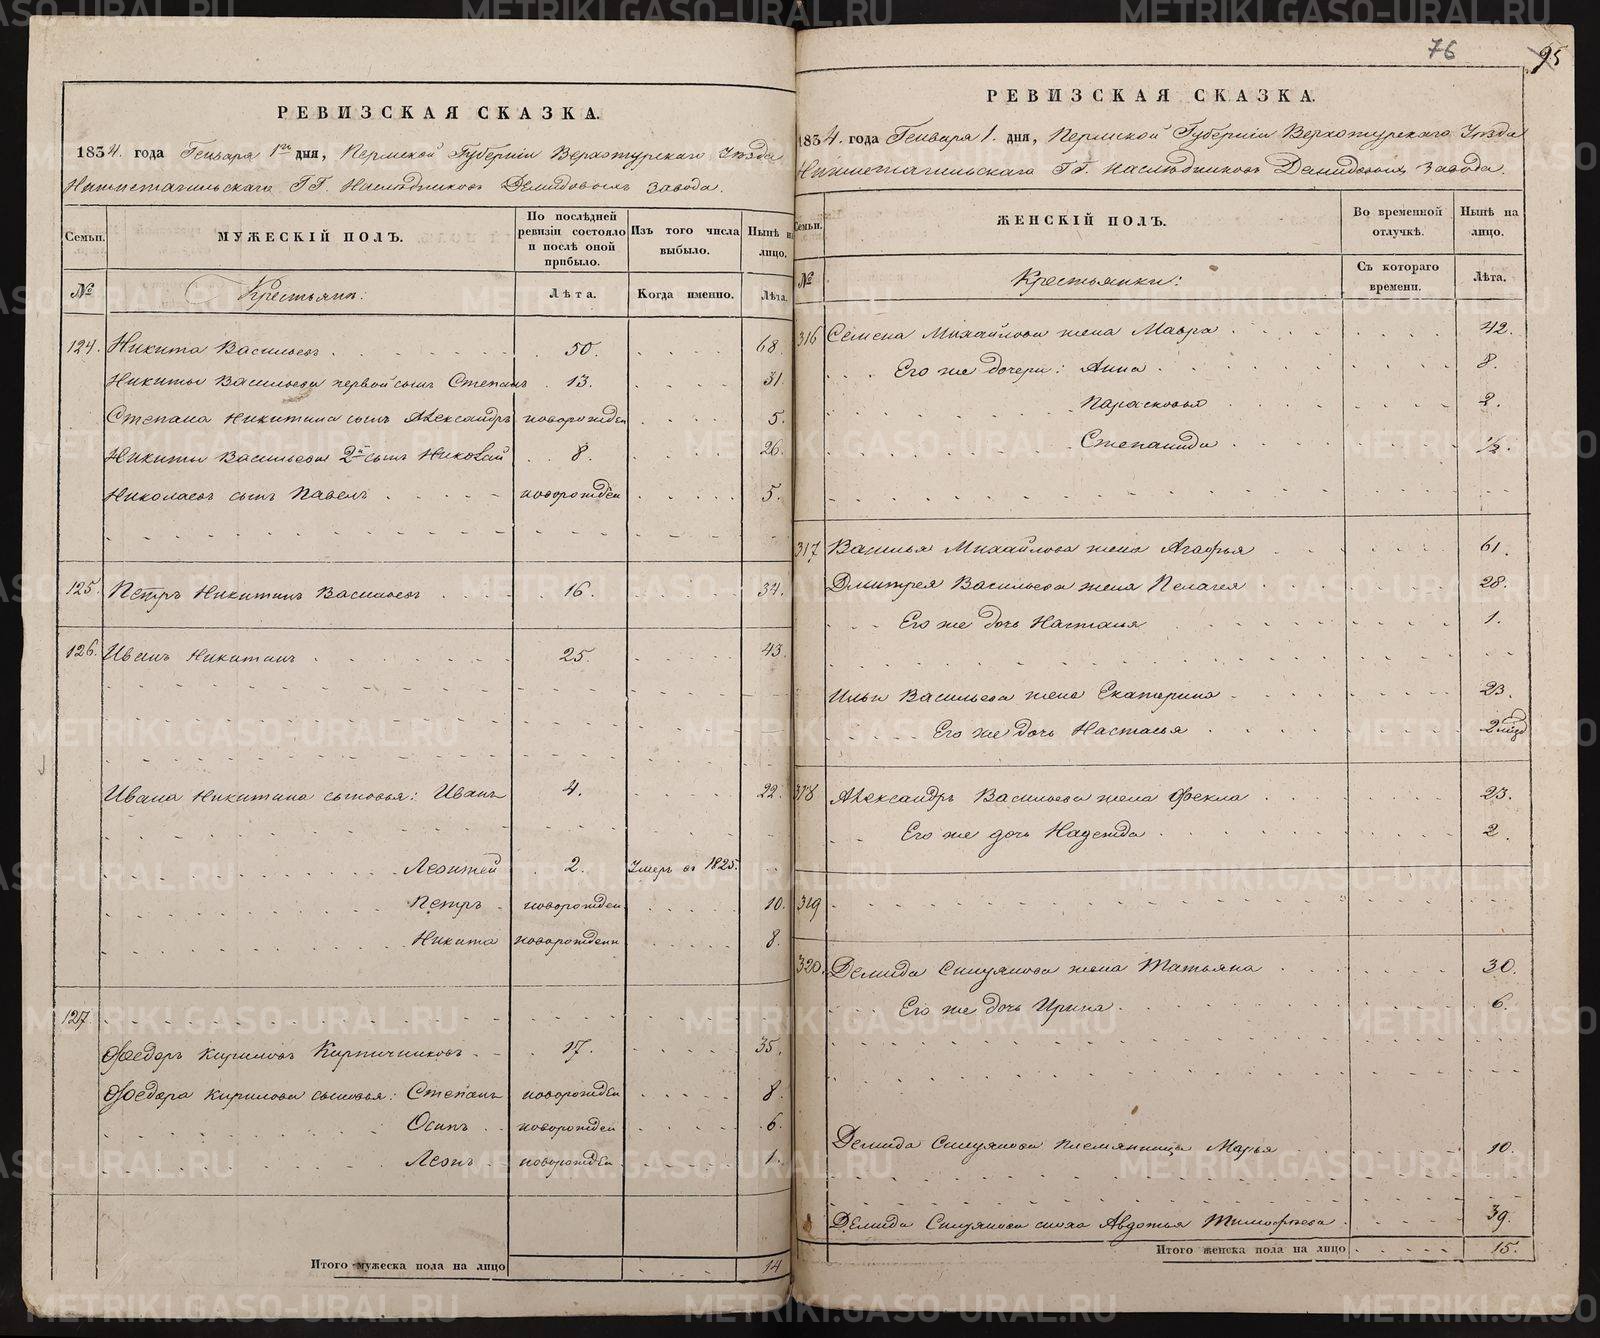 76
95
РЕВИЗСКАЯ СКАЗКА.
1834. года Генваря 1го дня, Пермской Губерніи Верхотурскаго Уѣзда
Нижнетагильскаго ГГ. Наслѣдниковъ Демидовыхъ завода.
Семьи.
МУЖЕСКІЙ ПОЛЪ.
По послѣдней ревизіи состояло и послѣ оной прибыло.
Изъ того числа выбыло.
Нынѣ на лицо.
№
Крестьянъ:
Лѣта.
Когда именно.
Лѣта.
124. Никита Васильевъ 50. 68
Никиты Васильева первой сынъ Степанъ 13. 31
Степана Никитина сынъ Александръ новорожден 5.
Никиты Васильева 2й сынъ Николай 8. 26.
Николаевъ сынъ Павелъ новорожден 5.
125. Петръ Никитинъ Васильевъ 16. 34.
126. Иванъ Никитинъ 25. 43.
Ивана Никитина сыновья: Иванъ 4. 22.
Леонтей 2. Умеръ въ 1825.
Петръ новорожден. 10.
Никита новорожденн 8.
127.
Ѳедоръ Кириловъ Кирпичниковъ 17. 35.
Ѳедора Кирилова сыновья: Степанъ новорожден 8
Осипъ новорожден 6.
Леонъ новорожден 1.
Итого мужеска пола на лицо 14
РЕВИЗСКАЯ СКАЗКА.
1834. года Генваря 1. дня, Пермской Губерніи Верхотурскаго Уѣзда
Нижнетагильскаго ГГ. Наслѣдниковъ Демидовыхъ завода.
Семьи.
ЖЕНСКІЙ ПОЛЪ.
Во временной отлучкѣ.
Нынѣ на лицо.
№
Крестьянки:
Съ котораго времени.
Лѣта.
316 Семена Михайлова жена Мавра 42.
Его же дочери: Анна 8.
Парасковья 2.
Степанида 1/2.
317 Василья Михайлова жена Агафья 61.
Дмитрея Васильева жена Пелагея 28.
Его же дочь Настасья 1.
Ильи Васильева жена Екатерина 23.
Его же дочь Настасья 2
318 Александръ Васильева жена Ѳекла 23.
Его же дочь Надежда 2.
319
320. Демида Сицянова жена Татьяна 30.
Его же дочь Ирина 6.
Демида Сицянова племянница Марья 10.
Демида Сицянова сноха Авдотья Тимофѣева 39.
Итого женска пола на лицо 15.
METRIKI.GASO-URAL.RU